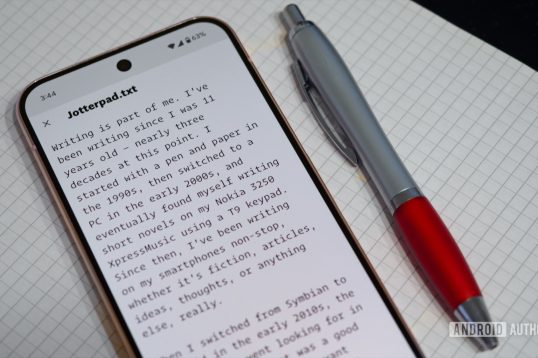 3:44
63%
× Jotterpad.txt
Writing is part of me. I've
been writing since I was 11
years old – nearly three
decades at this point. I
started with a pen and paper in
the 1990s, then switched to a
PC in the early 2000s, and
eventually found myself writing
short novels on my Nokia 3250
XpressMusic using a T9 keypad.
Since then, I've been writing
on my smartphones non-stop,
whether it's fiction, articles,
ideas, thoughts, or anything
else, really.
When I switched from Symbian to
in the early 2010s, the
looking for in
was a good
ANDROID AUTHO